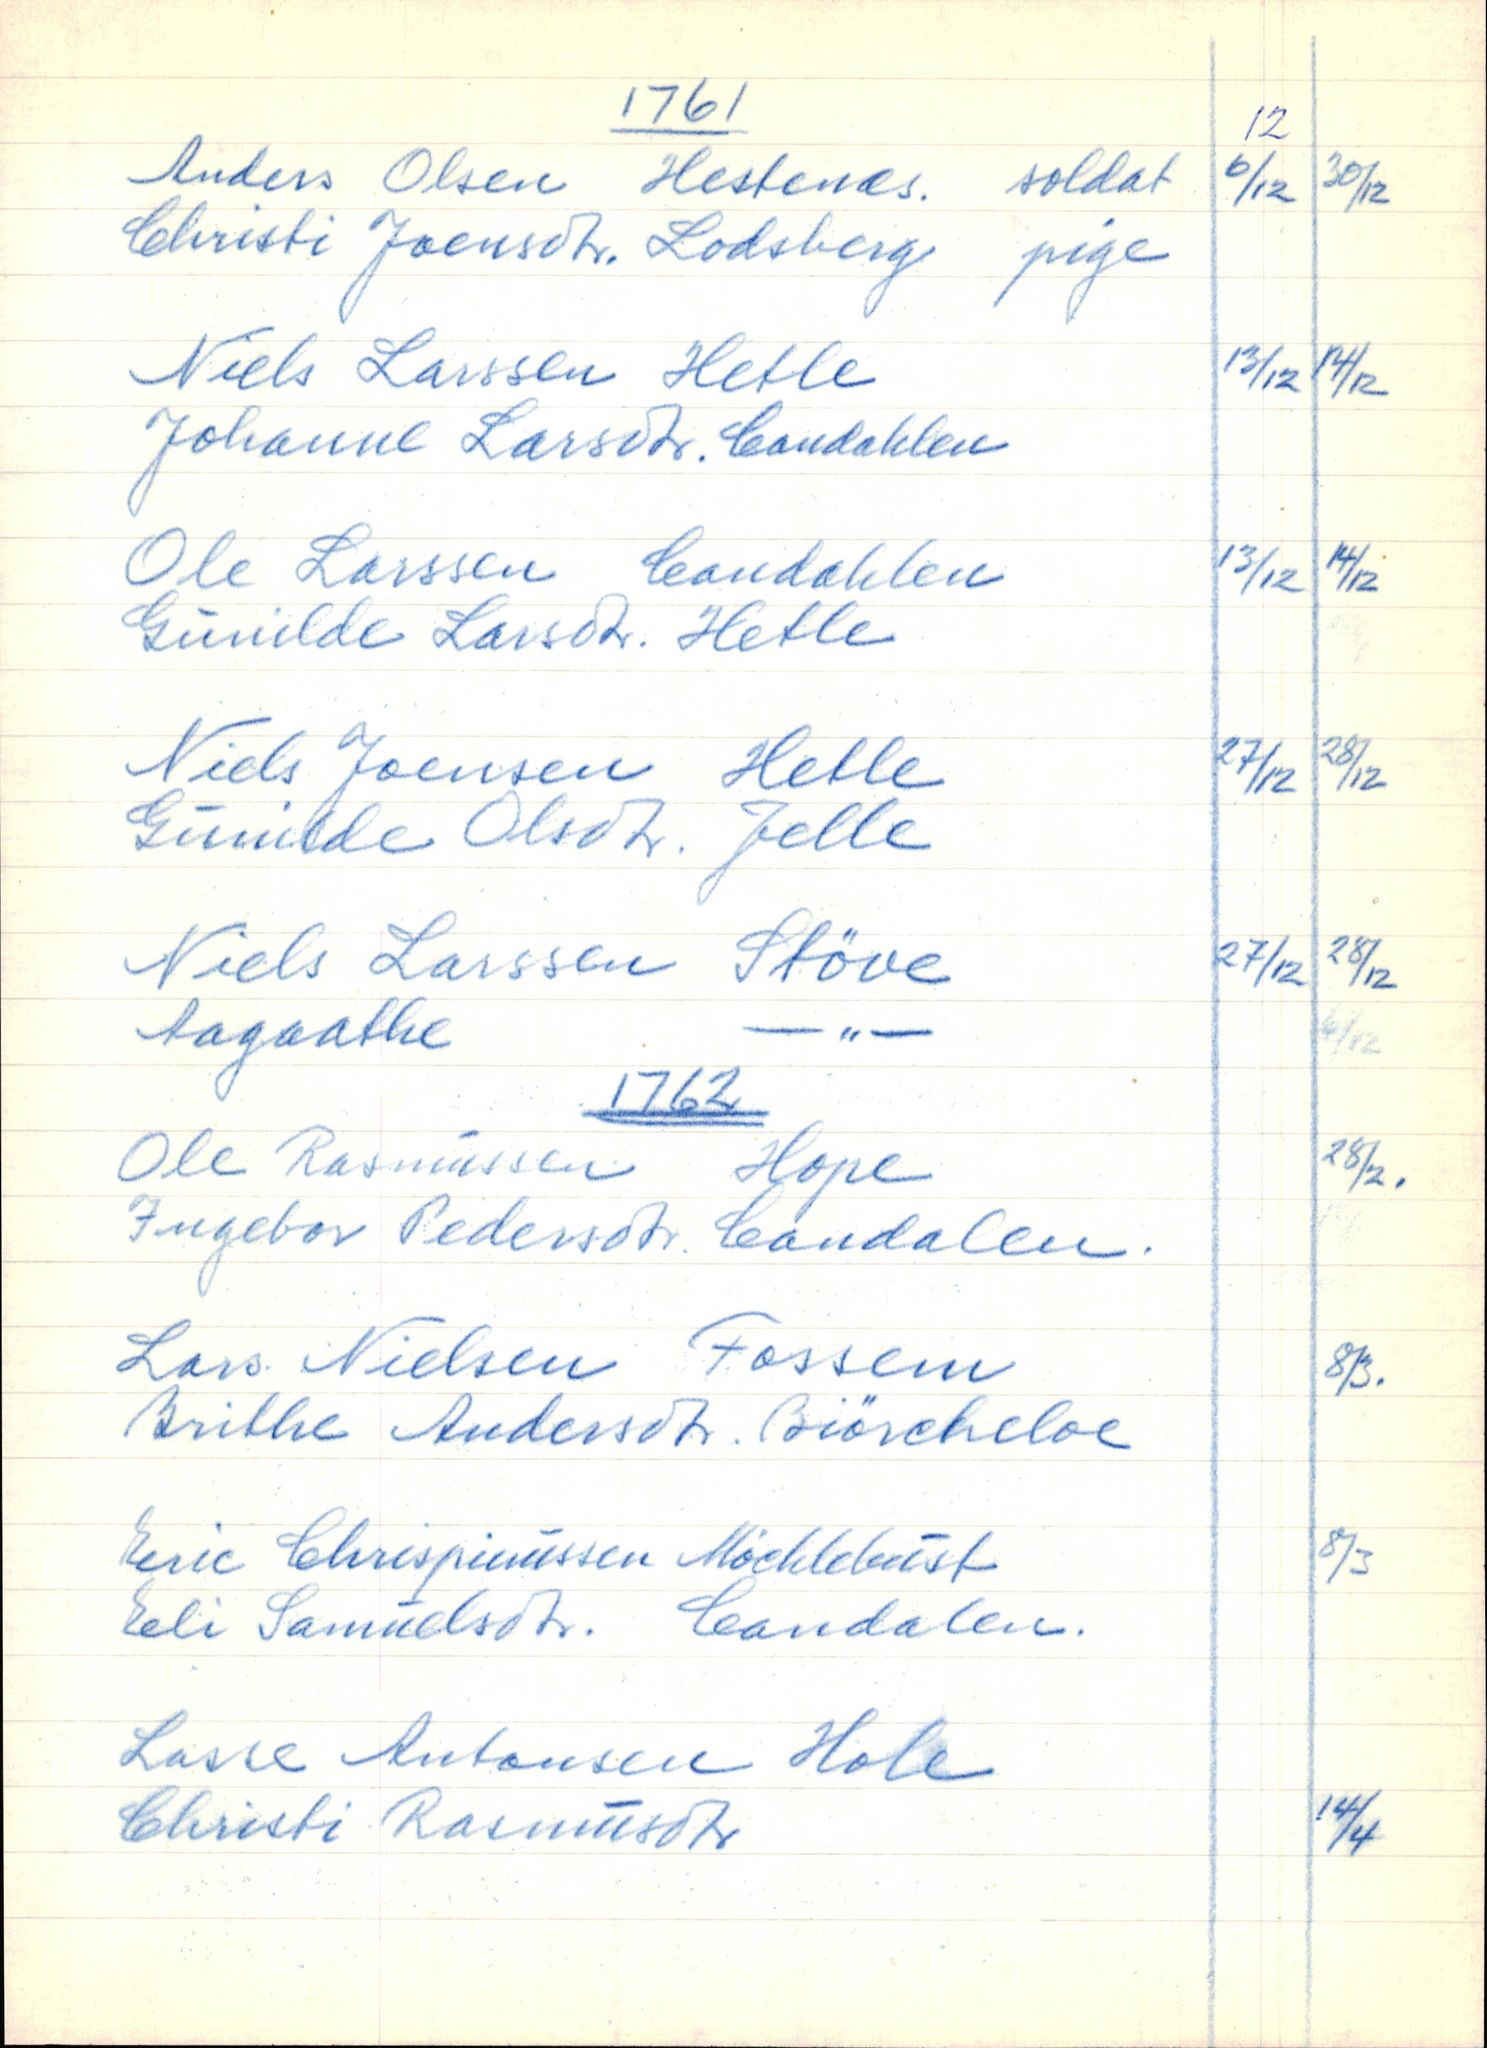 1761
12
Anders Olsen Hestenæs. soldat 6/12 30/12
Christi Joensdtr. Lodsberg pige
Niels Larssen Hetle 13/12 14/12
Johanne Larsdtr. Candahlen
Ole Larssen Candahlen 13/12 14/12
Gunilde Larsdtr. Hetle
Niels Joensen Hetle 27/12 28/12
Gunilde Olsdtr. Jelle
Niels Larssen Stöve 27/12 28/12
Aagaathe — „ —
1762
Ole Rasmussen Hope 28/2.
Ingebor Pedersdtr. Candalen.
Lars Nielsen Fossem 8/3.
Brithe Andersdtr. Biörcheloe
Eric Chrispinussen Möchlebust 8/3
Eeli Samuelsdtr. Candalen.
Lasse Antonsen Hole
Christi Rasmusdtr 14/4